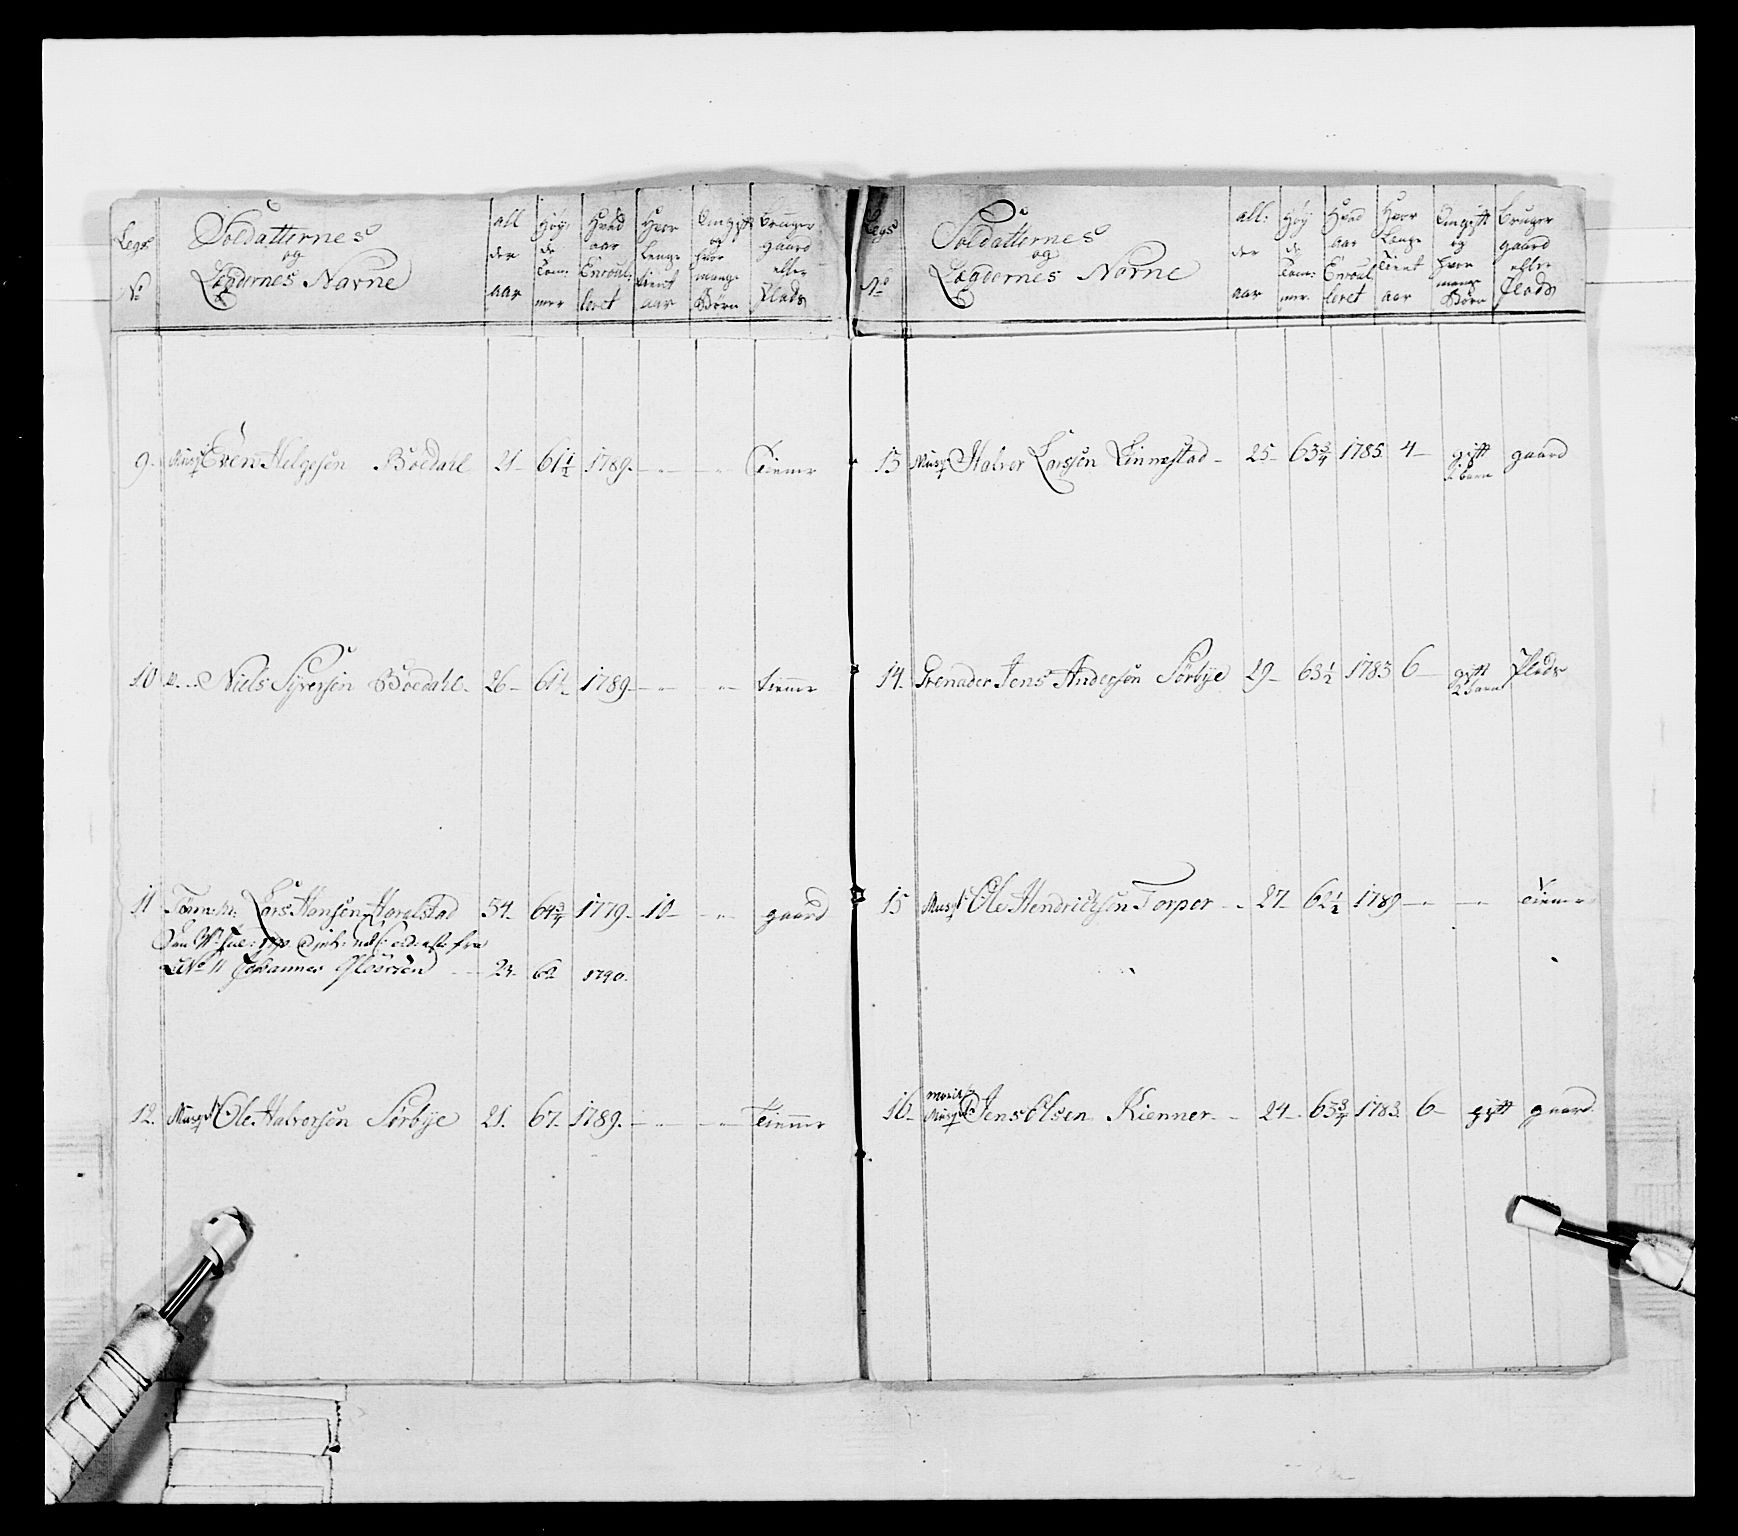 Legs No
Soldatternes og Lægdernes Navne
all der aar
Høy de Tom: mer
Hvad aar Enroul: leret
Hvor Lenge tient aar
Omgift og hvor mange Børn
Bruger gaard eller Plads
9. Musqt Even Helgesen Boedahl 21 61 1/4 1789. — " — " Tiener
10 D. Niels Syversen Boedahl. 26 61 1/2 1789 — " — " — tiener
11 Lars Hansen Haralstad 54. 64 3/4 1779. 10 — " gaard
No 11 Johannes 23. 62 1790.
12. Musqt Ole Halvorsen Sørbye 21. 67. 1789. — " — " Tiener
Legs No
Soldatternes og Lægdernes Navne
all: der aar
Høy de Tom: mer.
Hvad aar Enroul leret
Hvor Lenge Tient aar
Omgift og hvor mange Børn
Bruger gaard eller Plads
13 Musqt Halvor Larssen Linnestad 25 63 3/4 1785 4 gift 1 barn gaard
14. Grenader Jens Andersen Sørbye 29 63 1/2 1783 6 gift 2 barn Plads
15 Musqt Ole Hendrichsen Torper 27. 62 1/2 1789 — " — " — Tiener
16 Musqt Jens Olsen Kienner 24 63 3/4 1783. 6 gift gaard.